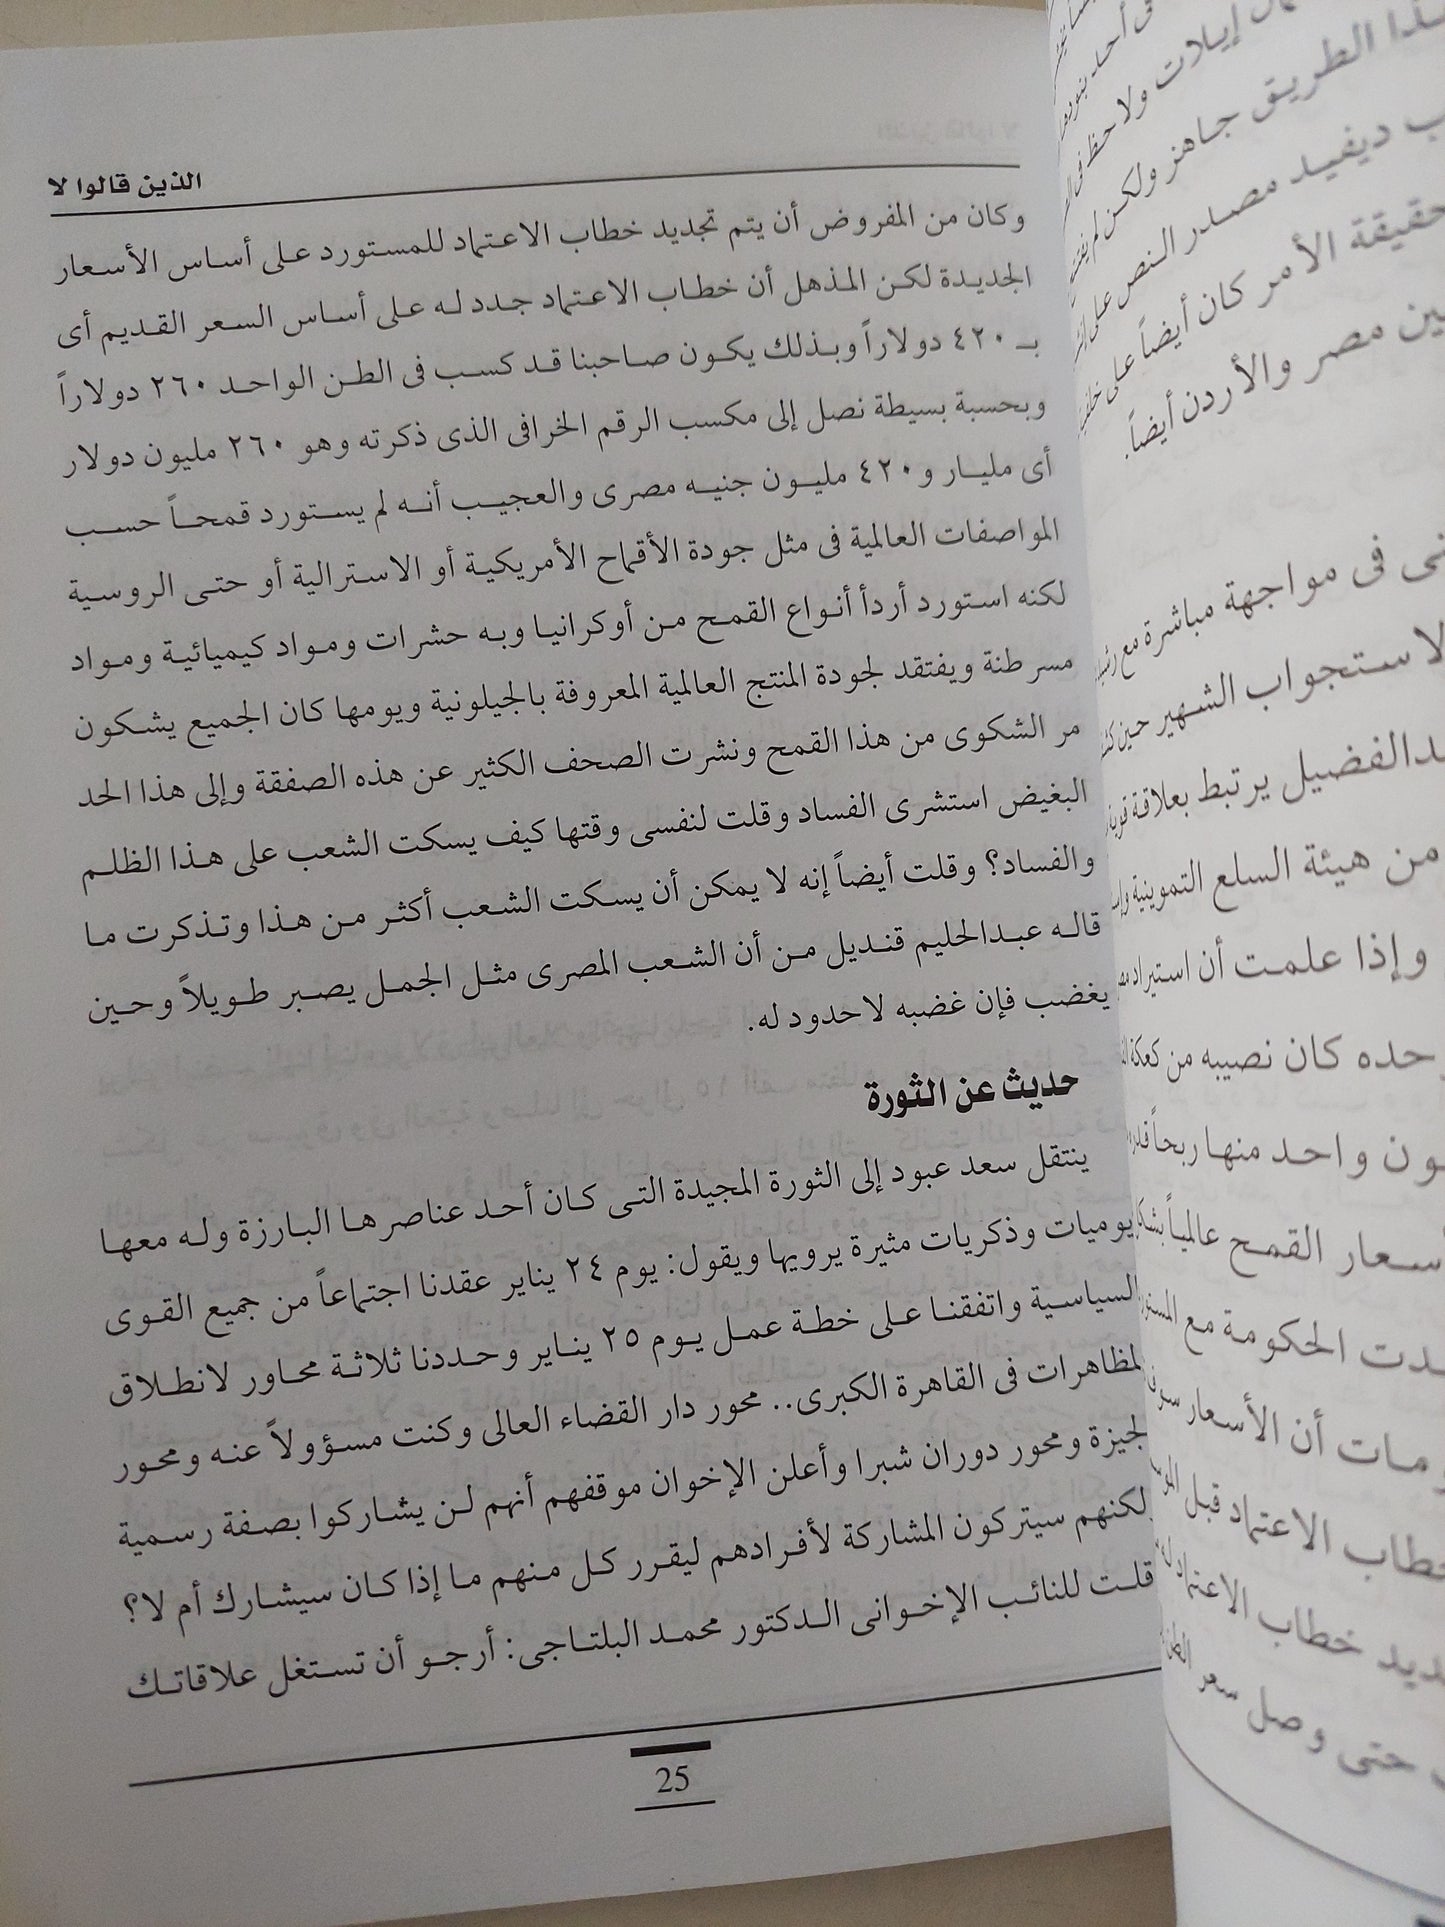 الذين قالوا لا
وكان من المفروض أن يتم تجديد خطاب الاعتماد للمستورد على أساس الأسعار
الجديدة لكن المذهل أن خطاب الاعتماد جدد له على أساس السعر القديم أى
بـ ٤٢٠ دولاراً وبذلك يكون صاحبنا قد كسب فى الطن الواحد ٢٦٠ دولاراً
وبحسبة بسيطة نصل إلى مكسب الرقم الخرافى الذى ذكرته وهو ٢٦٠ مليون دولار
أى مليار و٤٢٠ مليون جنيه مصرى والعجيب أنه لم يستورد قمحاً حسب
المواصفات العالمية فى مثل جودة الأقماح الأمريكية أو الاسترالية أو حتى الروسية
لكنه استورد أردأ أنواع القمح من أوكرانيا وبه حشرات ومواد كيميائية ومواد
مسرطنة ويفتقد لجودة المنتج العالمية المعروفة بالجيلونية ويومها كان الجميع يشكون
مر الشكوى من هذا القمح ونشرت الصحف الكثير عن هذه الصفقة وإلى هذا الحد
البغيض استشرى الفساد وقلت لنفسى وقتها كيف يسكت الشعب على هذا الظلم
والفساد؟ وقلت أيضاً إنه لا يمكن أن يسكت الشعب أكثر من هذا وتذكرت ما
قاله عبدالحليم قنديل من أن الشعب المصرى مثل الجمل يصبر طويلاً وحين
يغضب فإن غضبه لا حدود له.
حديث عن الثورة
ينتقل سعد عبود إلى الثورة المجيدة التى كان أحد عناصرها البارزة وله معها
يوميات وذكريات مثيرة يرويها ويقول: يوم ٢٤ يناير عقدنا اجتماعاً من جميع القوى
السياسية واتفقنا على خطة عمل يوم ٢٥ يناير وحددنا ثلاثة محاور لانطلاق
لمظاهرات فى القاهرة الكبرى.. محور دار القضاء العالى وكنت مسؤولاً عنه ومحور
لجيزة ومحور دوران شبرا وأعلن الإخوان موقفهم أنهم لن يشاركوا بصفة رسمية
لكنهم سيتركون المشاركة لأفرادهم ليقرر كل منهم ما إذا كان سيشارك أم لا؟
قلت للنائب الإخوانى الدكتور محمد البلتاجى: أرجو أن تستغل علاقاتك
25
إيلات ولاحظ فى
ذا الطريق جاهز ولكن لم
ب ديفيد مصدر النص على
حقيقة الأمر كان أيضاً على
ين مصر والأردن أيضاً.
نى فى مواجهة مباشرة مع
لاستجواب الشهير حين
دالفضيل يرتبط بعلاقة
من هيئة السلع التموينية
وإذا علمت أن استيراد
حده كان نصيبه من كعكة
ون واحد منها ربحاً
سعار القمح عالمياً
دت الحكومة مع
ومات أن الأسعار
خطاب الاعتماد قبل
ديد خطاب الاعتماد
حتى وصل سعر